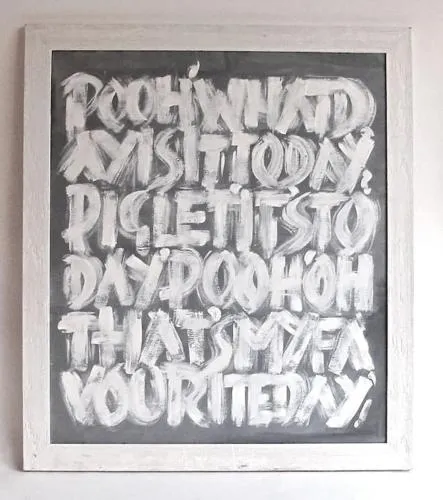 POOH'WHATD
AYISITTODAY?
PIGLET'IT'STO
DAY'POOH'OH
THAT'SMYFA
VOURITEDAY!